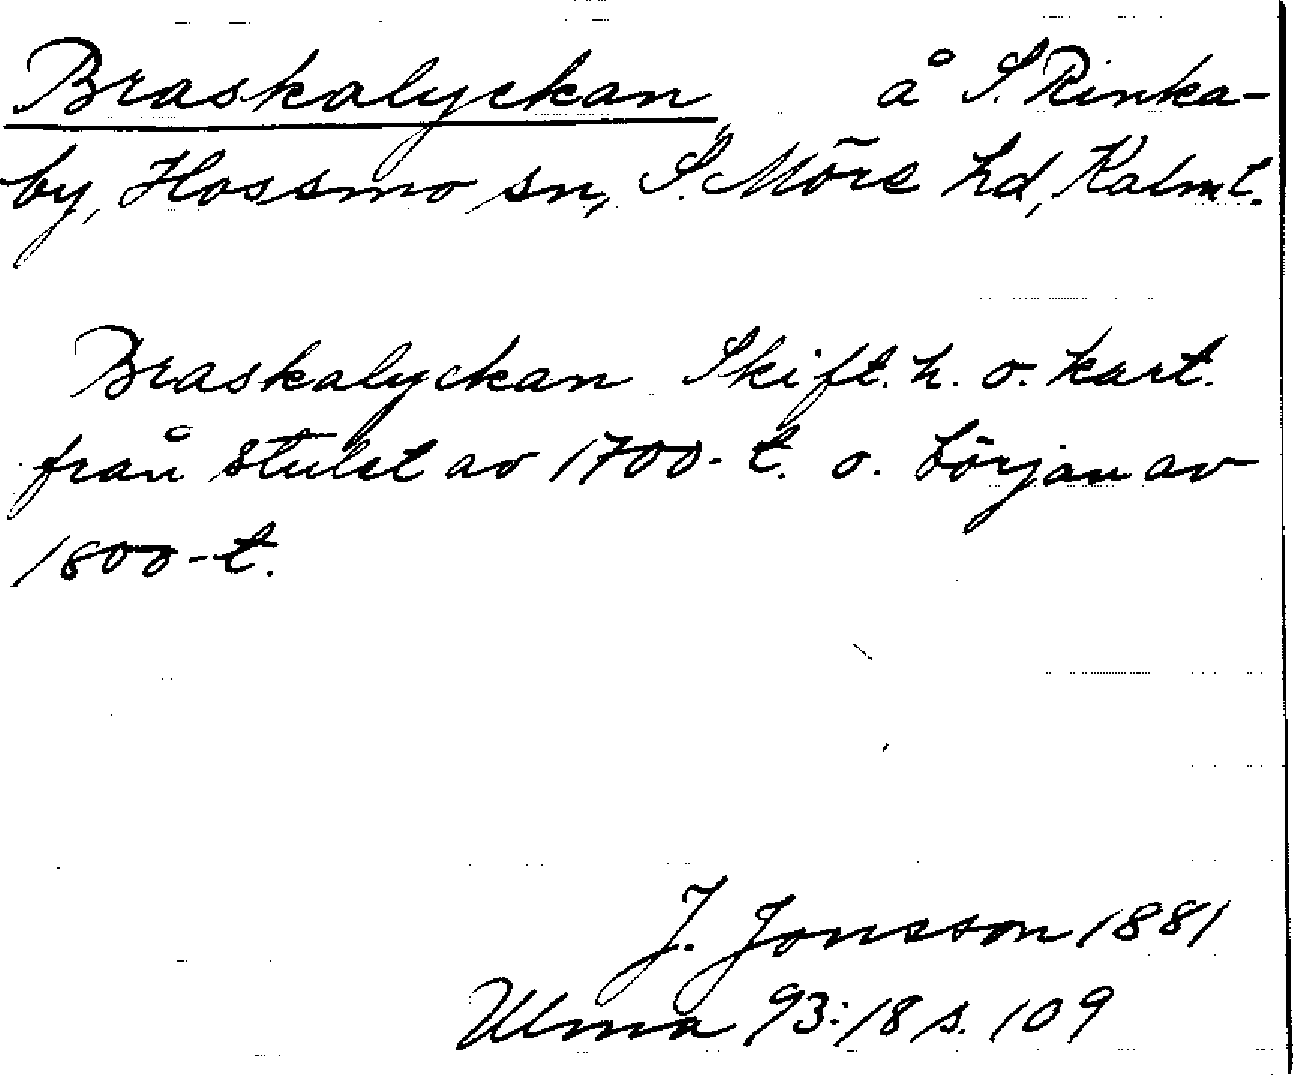 Braskalyckan å S. Rinka-
by, Hossmo sn, S. Möre hd, Kalm l.
Braskalyckan Skift. h. o. kart.
från slutet av 1700-t. o. början av
1800-t.
J. Jonsson 1881
Ulma 93:18 s. 109